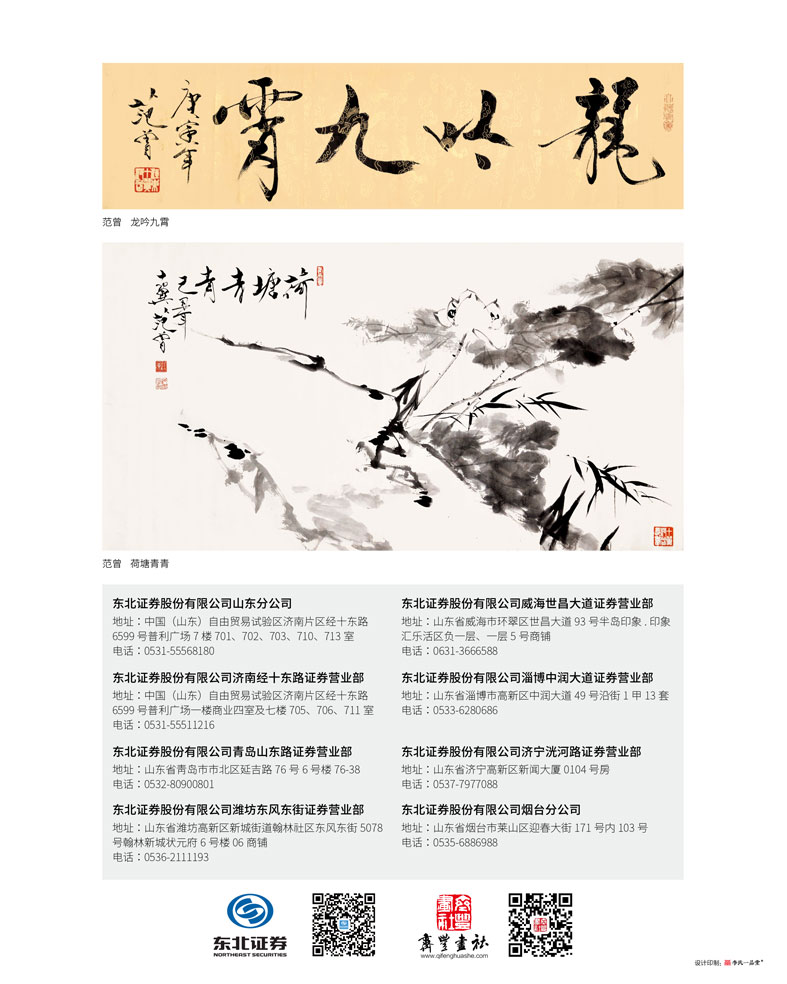 龍吟九霄
庚寅年
范曾
范曾 龙吟九霄
荷塘青青
己丑年
十翼范曾
范曾 荷塘青青
东北证券股份有限公司山东分公司
地址：中国（山东）自由贸易试验区济南片区经十东路
6599 号普利广场 7 楼 701、702、703、710、713 室
电话：0531-55568180
东北证券股份有限公司济南经十东路证券营业部
地址：中国（山东）自由贸易试验区济南片区经十东路
6599 号普利广场一楼商业四室及七楼 705、706、711 室
电话：0531-55511216
东北证券股份有限公司青岛山东路证券营业部
地址：山东省青岛市市北区延吉路 76 号 6 号楼 76-38
电话：0532-80900801
东北证券股份有限公司潍坊东风东街证券营业部
地址：山东省潍坊高新区新城街道翰林社区东风东街 5078
号翰林新城状元府 6 号楼 06 商铺
电话：0536-2111193
东北证券股份有限公司威海世昌大道证券营业部
地址：山东省威海市环翠区世昌大道 93 号半岛印象 . 印象
汇乐活区负一层、一层 5 号商铺
电话：0631-3666588
东北证券股份有限公司淄博中润大道证券营业部
地址：山东省淄博市高新区中润大道 49 号沿街 1 甲 13 套
电话：0533-6280686
东北证券股份有限公司济宁洸河路证券营业部
地址：山东省济宁高新区新闻大厦 0104 号房
电话：0537-7977088
东北证券股份有限公司烟台分公司
地址：山东省烟台市莱山区迎春大街 171 号内 103 号
电话：0535-6886988
东北证券
NORTHEAST SECURITIES
齐豐画社
www.qifenghuashe.com
设计印制：李氏一品堂